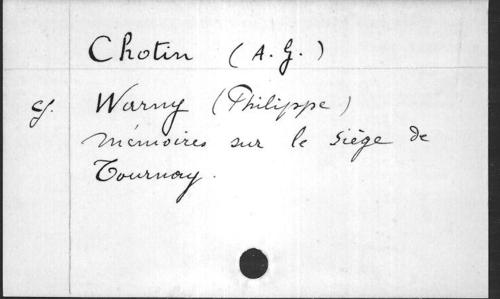 Chotin (A. G.)
cf. Warny (Philippe)
mémoires sur le siège de
Tournay.